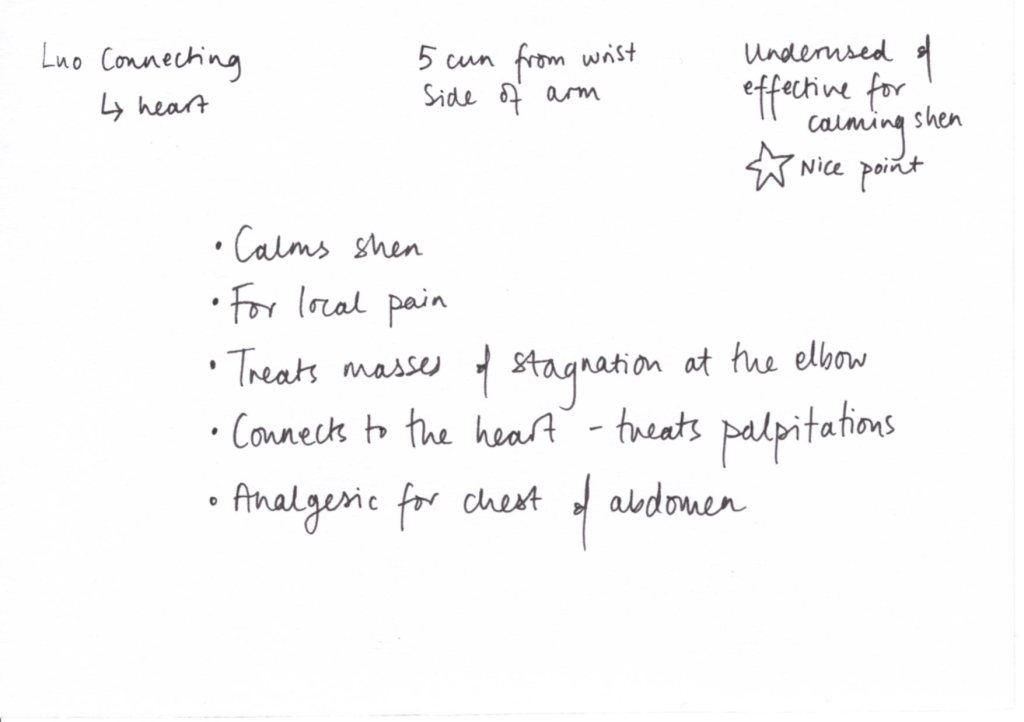 Luo Connecting
↳ heart
5 cun from wrist
Side of arm
Underused &
effective for
calming shen
☆ Nice point
• Calms shen
• For local pain
• Treats masses & stagnation at the elbow
• Connects to the heart - treats palpitations
• Analgesic for chest & abdomen